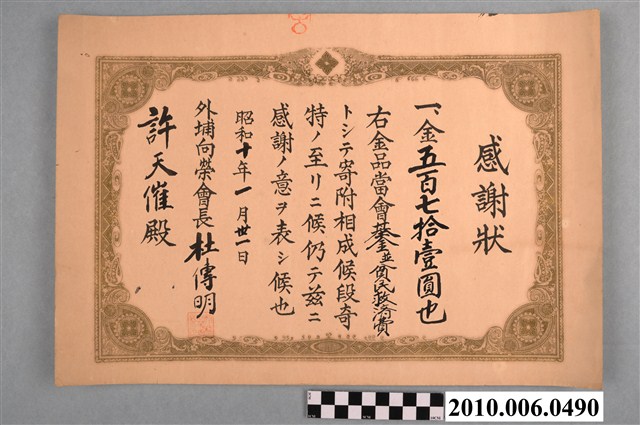 感謝狀
一、金五百七拾壹圓也
右金品當會基金並貧民救濟費
トシテ寄附相成候段奇
特ノ至リニ候仍テ茲ニ
感謝ノ意ヲ表シ候也
昭和十年一月卅一日
外埔向榮會長 杜傳明
許天催殿
2010.006.0490